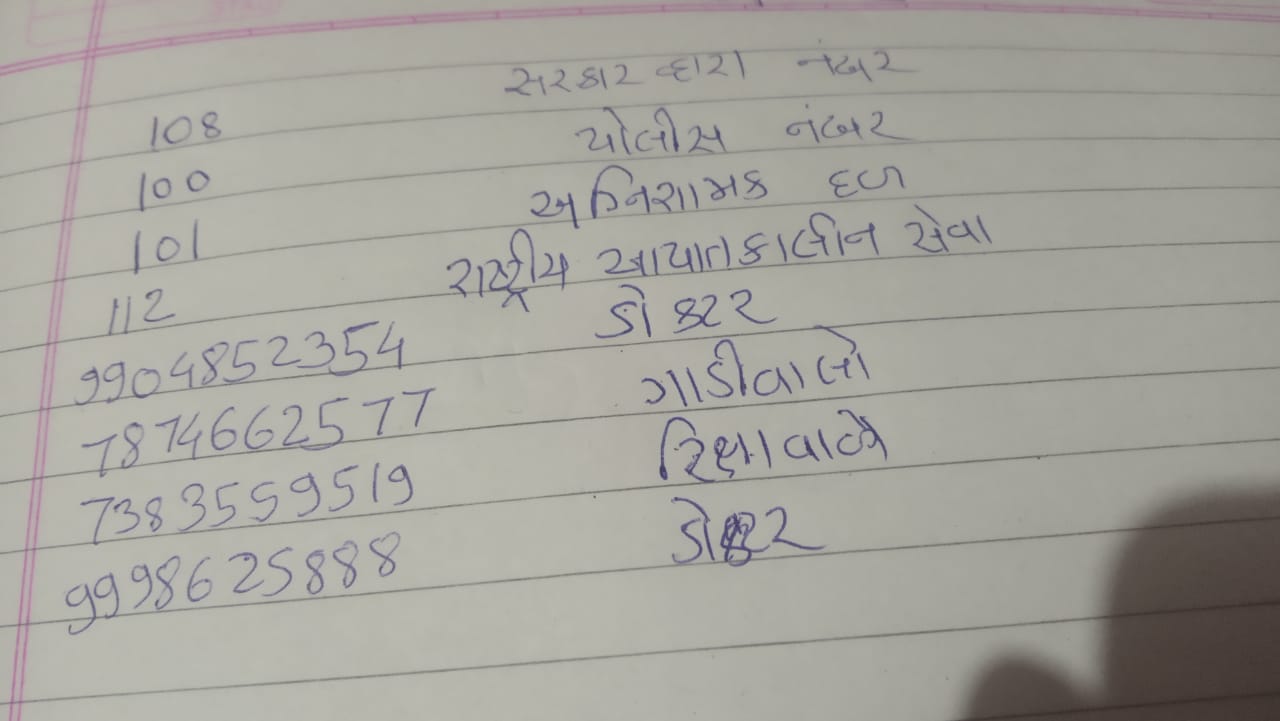 108 સરકાર દ્વારા નંબર
100 પોલીસ નંબર
101 અગ્નિશામક દળ
112 રાષ્ટ્રીય આપાતકાલીન સેવા
9904852354 ડોક્ટર
7874662577 ગાડીવાલો
7383559519 રિક્ષાવાળો
9998625888 ડોક્ટર